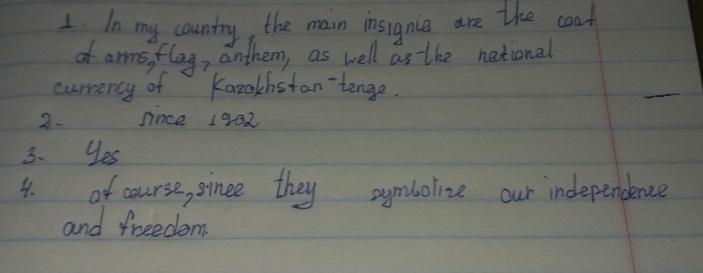 1. In my country, the main insignia are the coat
of arms, flag, anthem, as well as the national
currency of Kazakhstan-tenge.
2- since 1902
3- Yes
4. of course, sinee they symbolize our independence
and freedom.